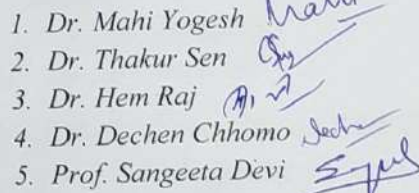 1. Dr. Mahi Yogesh
2. Dr. Thakur Sen
3. Dr. Hem Raj
4. Dr. Dechen Chhomo
5. Prof. Sangeeta Devi